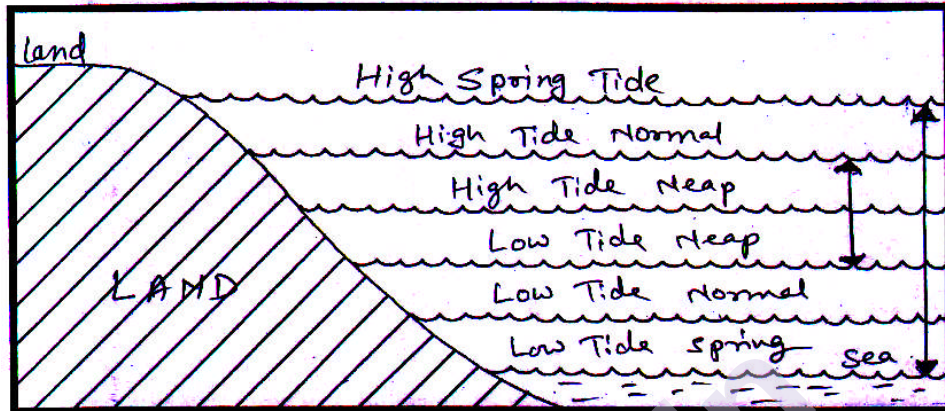 Land
High Spring Tide
High Tide Normal
High Tide Neap
Low Tide Neap
LAND
Low Tide Normal
Low Tide Spring
Sea